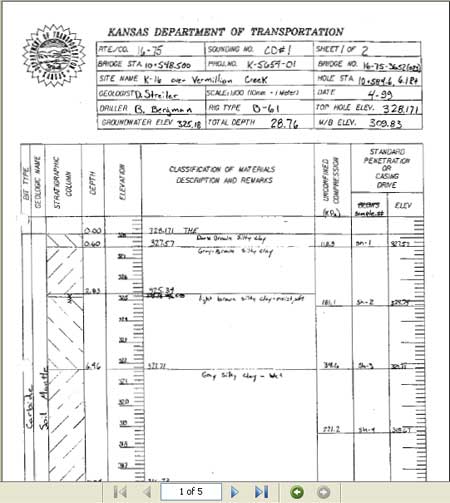 KANSAS DEPARTMENT OF TRANSPORTATION
RTE./CO. 16-75 SOUNDING NO. CD#1 SHEET 1 OF 2
BRIDGE STA. 10+548.500 PROJ. NO. K-5659-01 BRIDGE NO.
SITE NAME K-16 over Vermillion Creek HOLE STA.
GEOLOGIST D. Streiler SCALE: 1:100 (10mm = 1 Meter) DATE 4-99
DRILLER B. Bergman RIG TYPE B-61 TOP HOLE ELEV. 328.171
GROUNDWATER ELEV 325.18 TOTAL DEPTH 28.76 W/B ELEV. 309.83
BIT TYPE
GEOLOGIC NAME
STRATIGRAPHIC COLUMN
DEPTH
ELEVATION
CLASSIFICATION OF MATERIALS
DESCRIPTION AND REMARKS
UNCONFINED COMPRESSION
(KPa)
STANDARD
PENETRATION
OR
CASING
DRIVE
Sample #
ELEV
0.00 328.171 THE
Dark Brown Silty Clay
0.60 327.57 sh-1 327.57
Gray-Brown Silty Clay
2.83 325.34
light brown silty clay-moist, soft
sh-2
6.46 321.71 sh-3
Gray Silty Clay - Wet
sh-4
Carbide
Soil Mantle
1 of 5